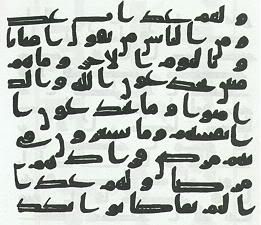 و لهم عذاب عظيم
و من الناس من يقول امنا با
و باليوم الاخر و ما هم
منين يخدعون الله و الذ
امنوا و ما يخدعون ا
نفسهم و ما يشعرون
مرض فزادهم
مرضا و لهم عذاب ا
ليم بما كانوا يكذ